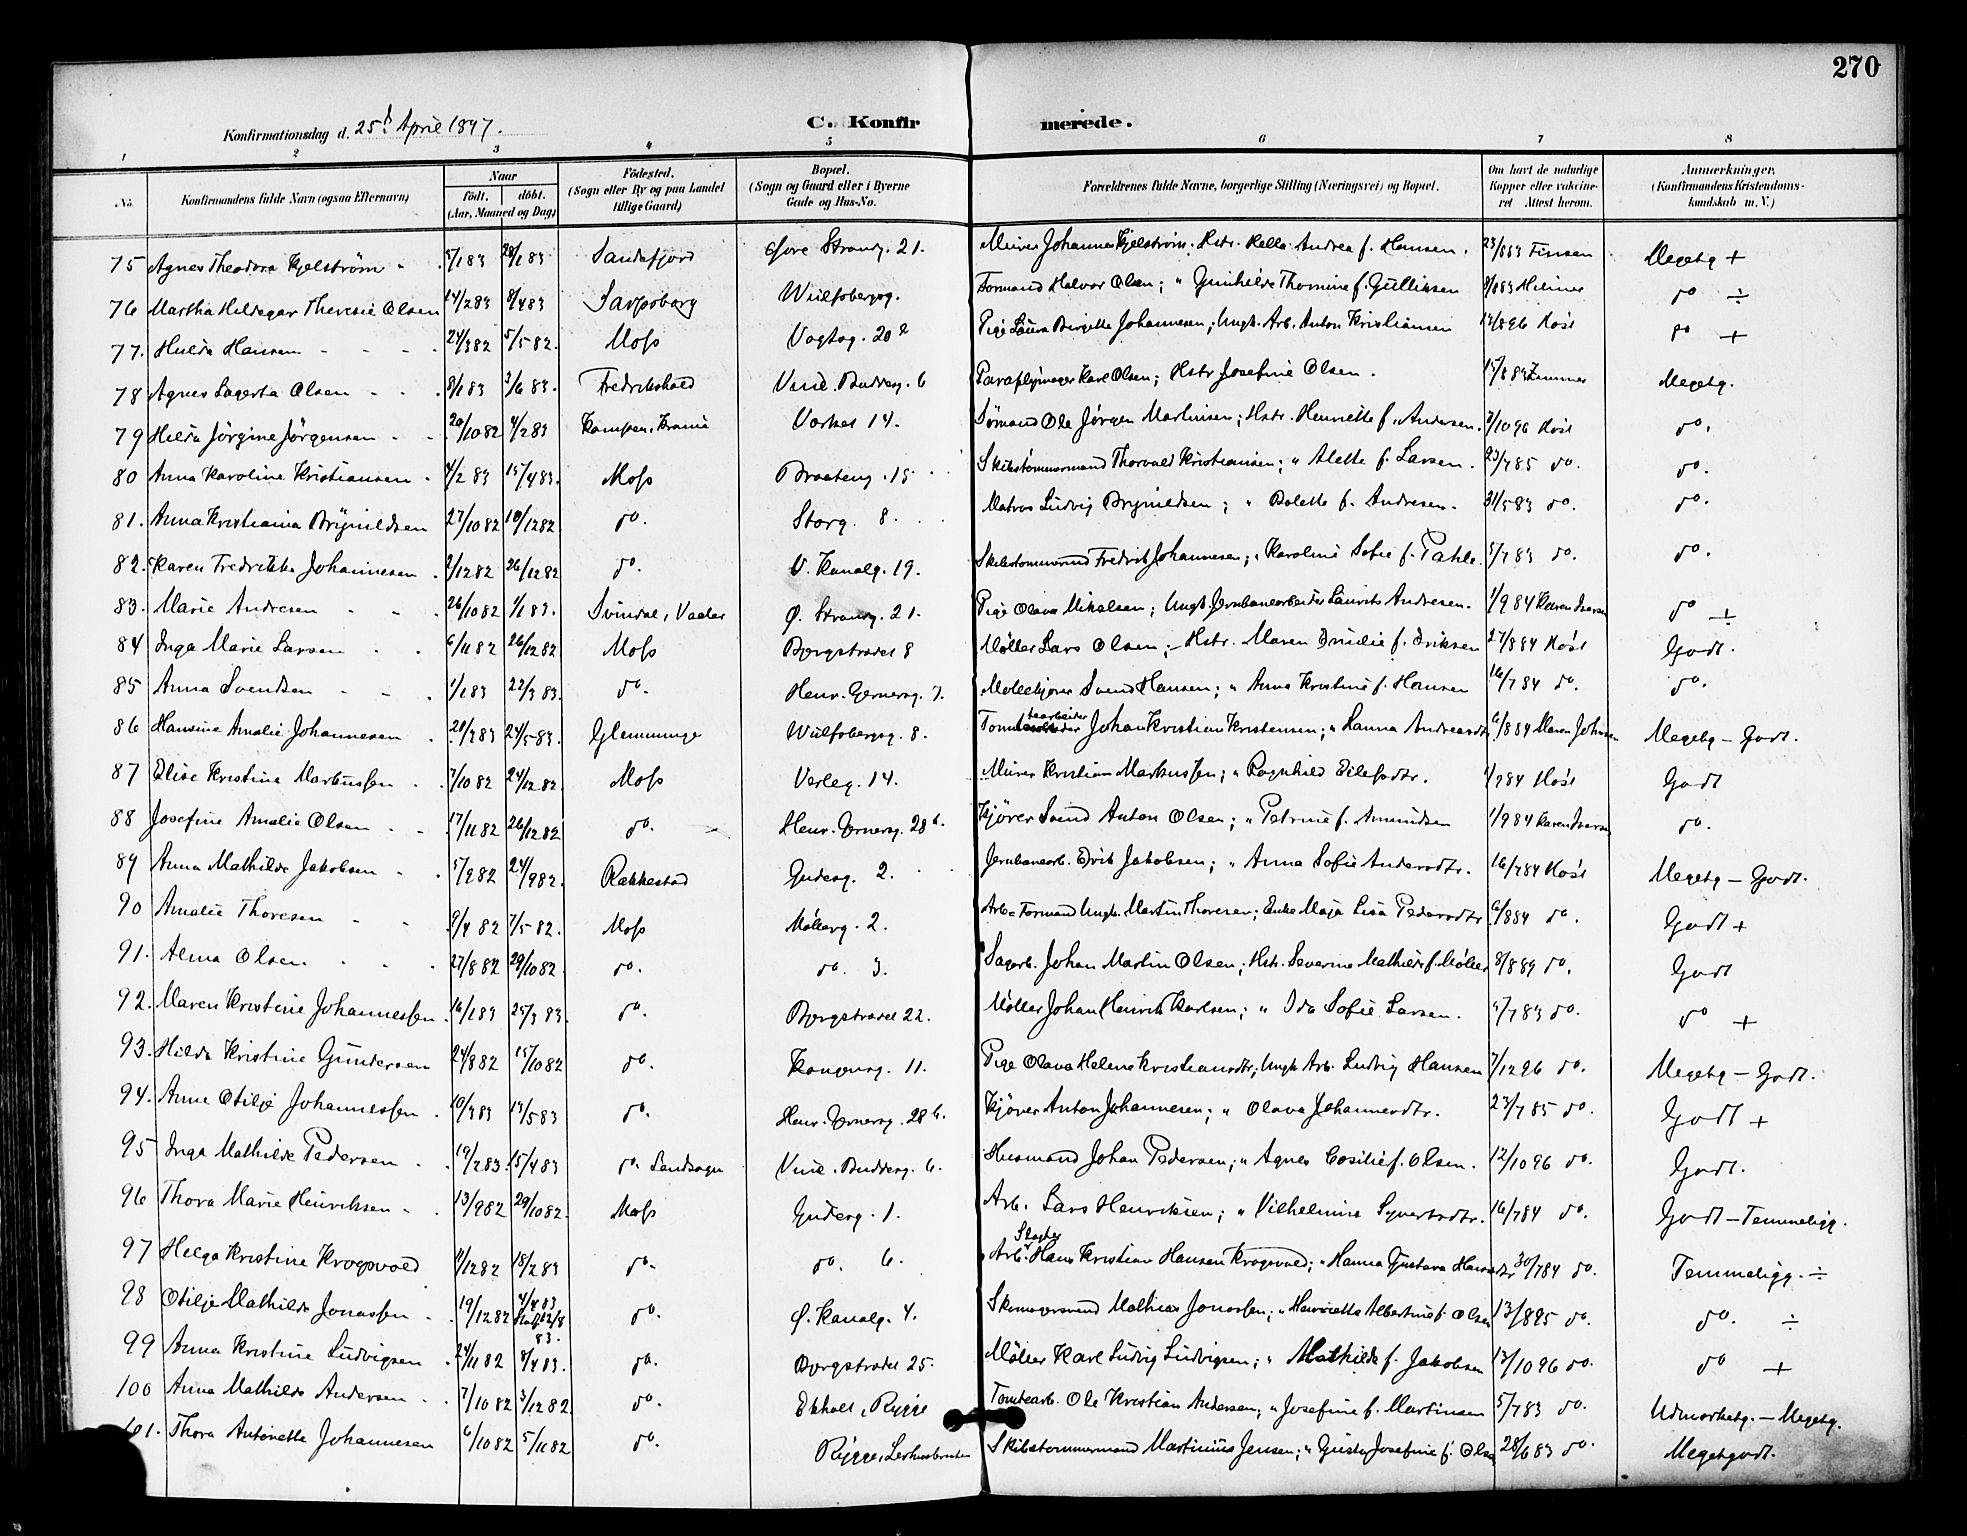 270
Konfirmationsdag d. 25d April 1897.
C. Konfirmerede.
1 2 3 4 5 6 7 8
No.
Konfirmandens fulde Navn (ogsaa Efternavn)
Naar
født. døbt.
(Aar, Maaned og Dag)
Fødested.
(Sogn eller By og paa Landet
tillige Gaard)
Bopæl.
(Sogn og Gaard eller i Byerne
Gade og Hus-No.
Forældrenes fulde Navne, borgerlige Stilling (Næringsvei) og Bopæl.
Om havt de naturlige
Kopper eller vakcine-
ret Attest herom.
Anmærkninger.
(Konfirmandens Kristendoms-
kundskab m. V.)
75 Agnes Theodora Kjelstrøm 28/1 83 Sandefjord Strandg. 21. Murer Johannes Kjelstrøm. Hstr. Andrea f. Hansen. Megetg +
76 Martha Hildegar Theresie Olsen 14/2 83 8/4 83 Sarpsborg Wulfsbergsg. Formand Halvor Olsen; " Gunhilde Thomine f. Gulliksen do ÷
77. Hulda Hansen 24/3 82 5/5 82. Moss Vogtsg. 20 Pige Laura Birgitte Johannesen; Ungk. Arb. Anton Kristiansen 14/8 96 Høst do +
78 Agnes Lagerta Olsen 8/1 83 3/6 83. Fredrikshald Vinc. Budderg. 6 Paraplymager Karl Olsen; Hstr Josefine Olsen. Megetg.
79 Hilda Jørgine Jørgensen 20/10 82 4/2 83 Kampen, Krania Varket 14. Sømand Ole Jørgen Martinsen; Hstr. Henriette f. Andersen. 7/10 96 Høst do.
80 Anna Karoline Kristiansen 4/2 83 15/4 83. Moss Braateng. 15 Skibstømmermand Thorvald Kristiansen; " Alette f. Larsen. 23/7 85 do. do.
81. Anna Kristiania Brynildsen 27/10 82 10/12 82. do. Storg. 8. Matros Ludvig Brynildsen; " Bolette f. Andresen. 31/5 83 do. do.
82. Karen Fredrikke Johannesen 2/12 82 26/12 82 do. V. Kanalg. 19. Skibstømmermand Fredrik Johannesen; " Karoline Sofie f. Pahle. 5/7 83 do. do.
83. Marie Andresen 26/10 82 1/1 83. Svindal, Vaaler Ø. Strandg. 21. Pige Olava Mikalsen; Ungk. Jernbanearbeider Laurits Andresen. 1/9 84 Karen Iversen do ÷
84 Inga Marie Larsen 6/11 82 26/12 82 Moss Bergstrædet 8 Møller Lars Olsen; Hstr. Maren f. Eriksen 27/8 84 Høst Godt.
85 Anna Svendsen 1/1 83 22/3 83. do. Henr. Gernersg. 7. Møllekjører Svend Hansen; " Anna Kristine f. Hansen 16/7 84 do. do.
86 Hansine Amalie Johannesen 28/3 83 24/5 83. Glemminge Wulfsbergsg. 8. Tomtearbeider Johan Kristian Kristensen; " Hanna Andreasdtr 6/8 84 Maren Johnsen Megetg - Godt.
87 Elise Kristine Markussen 7/10 82 24/12 82. Moss Verleg. 14. Murer Kristian Markussen; " Ragnhild Eilefsdtr. 1/7 84 Høst Godt
88 Josefine Amalie Olsen 17/11 82 26/12 82 do. Henr. Gernersg. 28 b. Kjører Svend Anton Olsen; " Petrine f. Amundsen 1/9 84 Karen Iversen do.
89 Anna Mathilde Jakobsen 5/9 82 24/9 82. Rakkestad Gudesg. 2. Jernbanearb. Erik Jakobsen; " Anna Sofie Andersdtr. 16/7 84 Høst Megetg - Godt.
90 Amalie Thoresen 9/4 82 7/5 82. Moss Møllerg. 2. Arb.-Formand Ungk. Martin Thoresen; Enke Maja Lisa Pedersdtr 6/8 84 do. Godt +
91. Alma Olsen 27/8 82 29/10 82. do. do. 3. Sagarb. Johan Martin Olsen; Hstr. Severine Mathilde f. Møller 8/8 89 do. Godt
92. Maren Kristine Johannessen 16/1 83 25/3 83. do. Bergstrædet 22. Møller Johan Henrik Karlsen; " Ida Sofie Larsen. 5/7 83 do. do +
93. Hilda Kristine Gundersen 24/8 82 15/10 82 do. Kongensg. 11. Pige Olava Helene Kristiansdtr; Ungk Arb. Ludvig Hansen 7/12 96 do. Megetg - Godt.
94. Anne Otilje Johannessen 10/3 83 14/5 83 do. Henr. Gernersg. 28 b. Kjører Anton Johannesen; " Olava Johannesdtr. 23/7 85 do. Godt +
95 Inga Mathilde Pedersen 19/2 83. 15/4 83 do. Landsogn Vinc. Budderg. 6. Husmand Johan Pedersen; " Agnes Cosilie f. Olsen. 12/10 96 do. Godt.
96 Thora Marie Henriksen 13/9 82 29/10 82. Moss Gudesg. 1. Arb. Lars Henriksen; " Vilhelmine Syvertsdtr. 16/7 84 do. Godt - Temmeligg.
97 Helga Kristine Krogsvold 11/12 82 18/2 83 do. do. 6. Arb. Hans Kristian Hansen Krogsvold; " Hanna Gustava Hansdtr 30/7 84 do. Temmeligg. ÷
98 Otilje Mathilde Jonassen 19/12 82 4/4 83 Stadf. 12/8 83. do. Ø. Kanalg. 4. Skomagersvend Mathias Jonassen; " Henriette Albertine f. Olsen 13/8 95 do. do. ÷
99 Anna Kristine Ludvigsen 24/11 82 8/4 83. do. Bergstrædet 25. Møller Karl Ludvig Ludvigsen; " Mathilde f. Jakobsen 13/10 96 do. do +
100 Anna Mathilde Andersen 7/10 82 3/12 82. do. Ekholt, Rygge Tomtearb. Ole Kristian Andersen; " Josefine f. Martinsen 5/7 83 do. Udmærketg. - Megetg.
101. Thora Antonette Johannesen 6/10 82 5/11 82 do. Rygge, Skibstømmermand Martinius Jensen; " Gusta Josefine f. Olsen 28/6 83 do. Megetgodt.